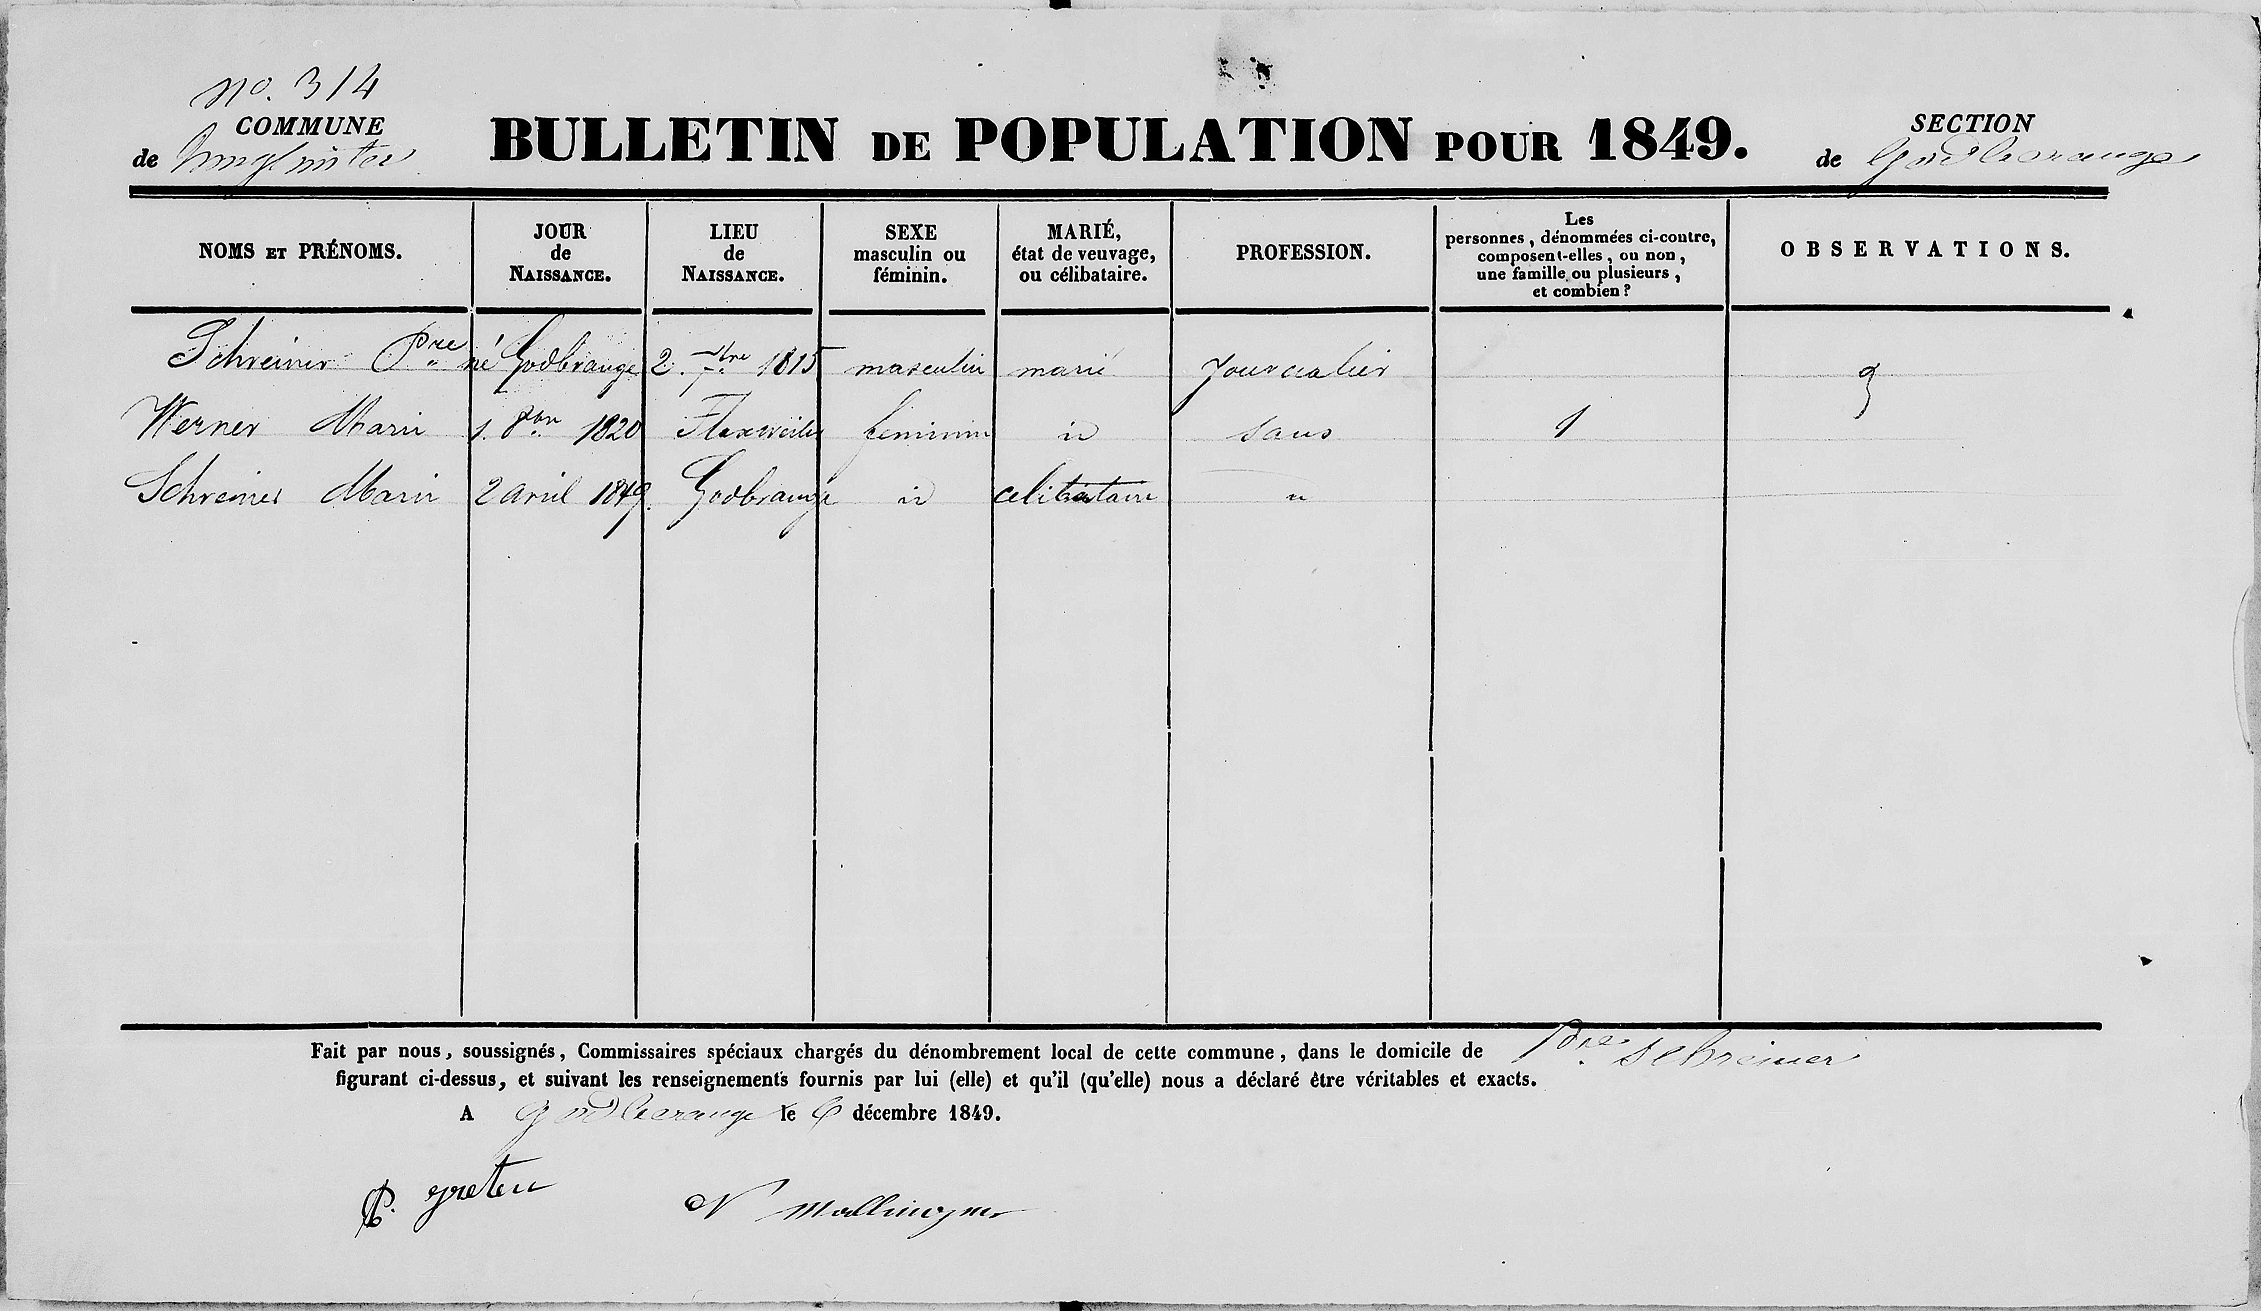 No. 314
COMMUNE
de Junglinster
BULLETIN DE POPULATION POUR 1849.
SECTION
de Godbrange
NOMS ET PRÉNOMS.
JOUR
de
NAISSANCE.
LIEU
de
NAISSANCE.
SEXE
masculin ou
féminin.
MARIÉ,
état de veuvage,
ou célibataire.
PROFESSION.
Les
personnes, dénommées ci-contre,
composent-elles, ou non,
une famille ou plusieurs,
et combien?
OBSERVATIONS.
Schreiner Pre né Godbrange 2. 7bre 1815 masculin marié Journalier
Werner Marie 1. 8bre 1820 Flaxweiler feminin id sans 1
Schreiner Marie 2 avril 1849. Godbrange id celibataire "
Fait par nous, soussignés, Commissaires spéciaux chargés du dénombrement local de cette commune, dans le domicile de Pre Schreiner
figurant ci-dessus, et suivant les renseignements fournis par lui (elle) et qu'il (qu'elle) nous a déclaré être véritables et exacts.
A Godbrange le 6 décembre 1849.
P. N